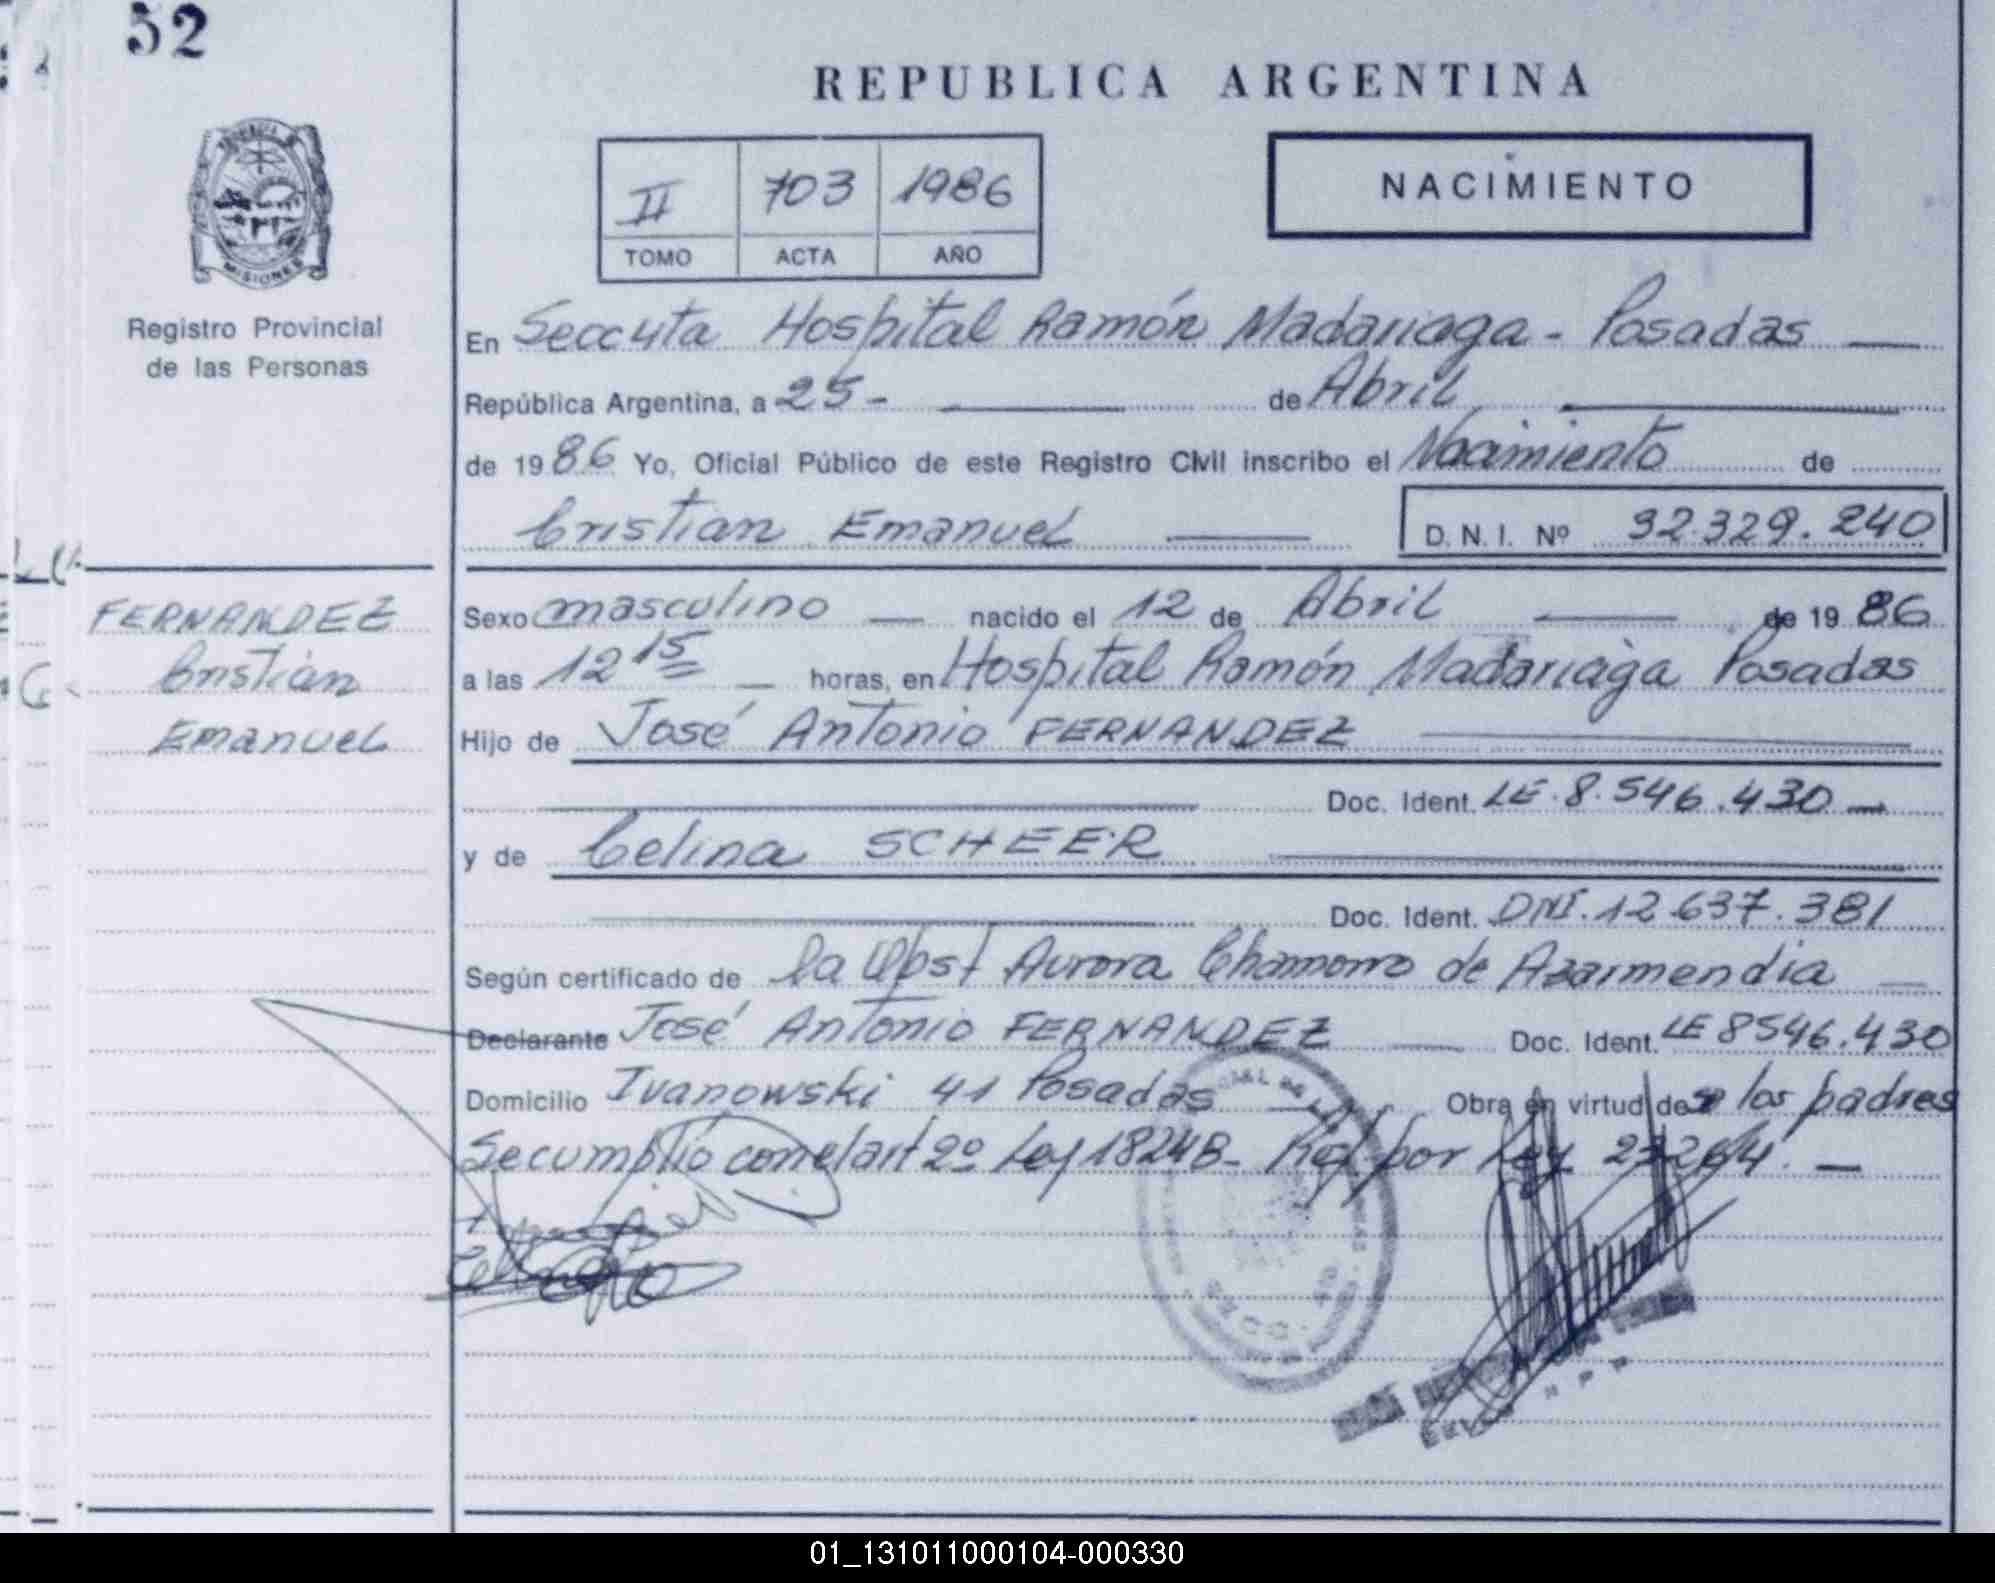 52
REPUBLICA ARGENTINA
II 703 1986
TOMO ACTA AÑO
NACIMIENTO
MISIONES
Registro Provincial
de las Personas
En Secc 4ta Hospital Ramón Madariaga - Posadas
República Argentina, a 25 - de Abril
de 1986 Yo, Oficial Público de este Registro Civil inscribo el Nacimiento de
Cristian Emanuel
D. N. I. Nº 32.329.240
FERNANDEZ
Cristian
Emanuel
Sexo masculino nacido el 12 de Abril de 1986
a las 12 15 horas, en Hospital Ramón Madariaga Posadas
Hijo de José Antonio FERNANDEZ
Doc. Ident. LE. 8.546.430
y de Celina SCHEER
Doc. Ident. DNI. 12.637.381
Según certificado de la Obst Aurora Chamorro de Azarmendia
Declarante José Antonio FERNANDEZ Doc. Ident. LE 8546.430
Domicilio Ivanowski 41 Posadas Obra en virtud de los padres
Se cumplio con el art 2º Ley 18248 - Ref por Ley 23264. -
01_131011000104-000330